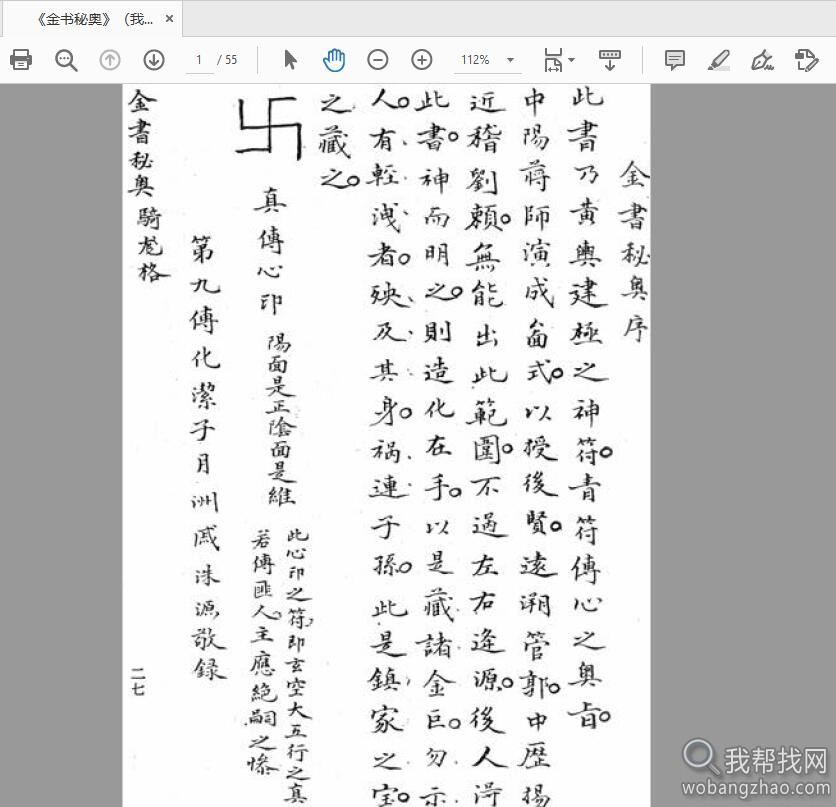 《金书秘奥》（我... ×
1 / 55
112%
金書秘奥序
此書乃黃輿建極之神符。青符傳心之奥旨。
中陽蔣師演成圖式。以授後賢。遠溯管郭。中歷楊
近稽劉賴。無能出此範圍。不過左右逢源。後人淂
此書。神而明之。則造化在手。以是藏諸金匱。勿示
人。有輕洩者。殃及其身。禍連子孫。此是鎮家之宝。
之藏之。
卍
真傳心印
陽面是正陰面是維
此心印之符。即玄空大五行之真
若傳匪人。主應絕嗣之慘
第九傳化潔子月洲戚洙源敬録
金書秘奥
騎龍格
二七
我帮找网
wobangzhao.com